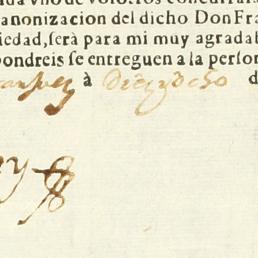 ada vno de voſotros concurrais
anonizacion del dicho Don Fra
iedad, ſerà para mi muy agradab
pondreis ſe entreguen a la perſon
à Diez y ocho d